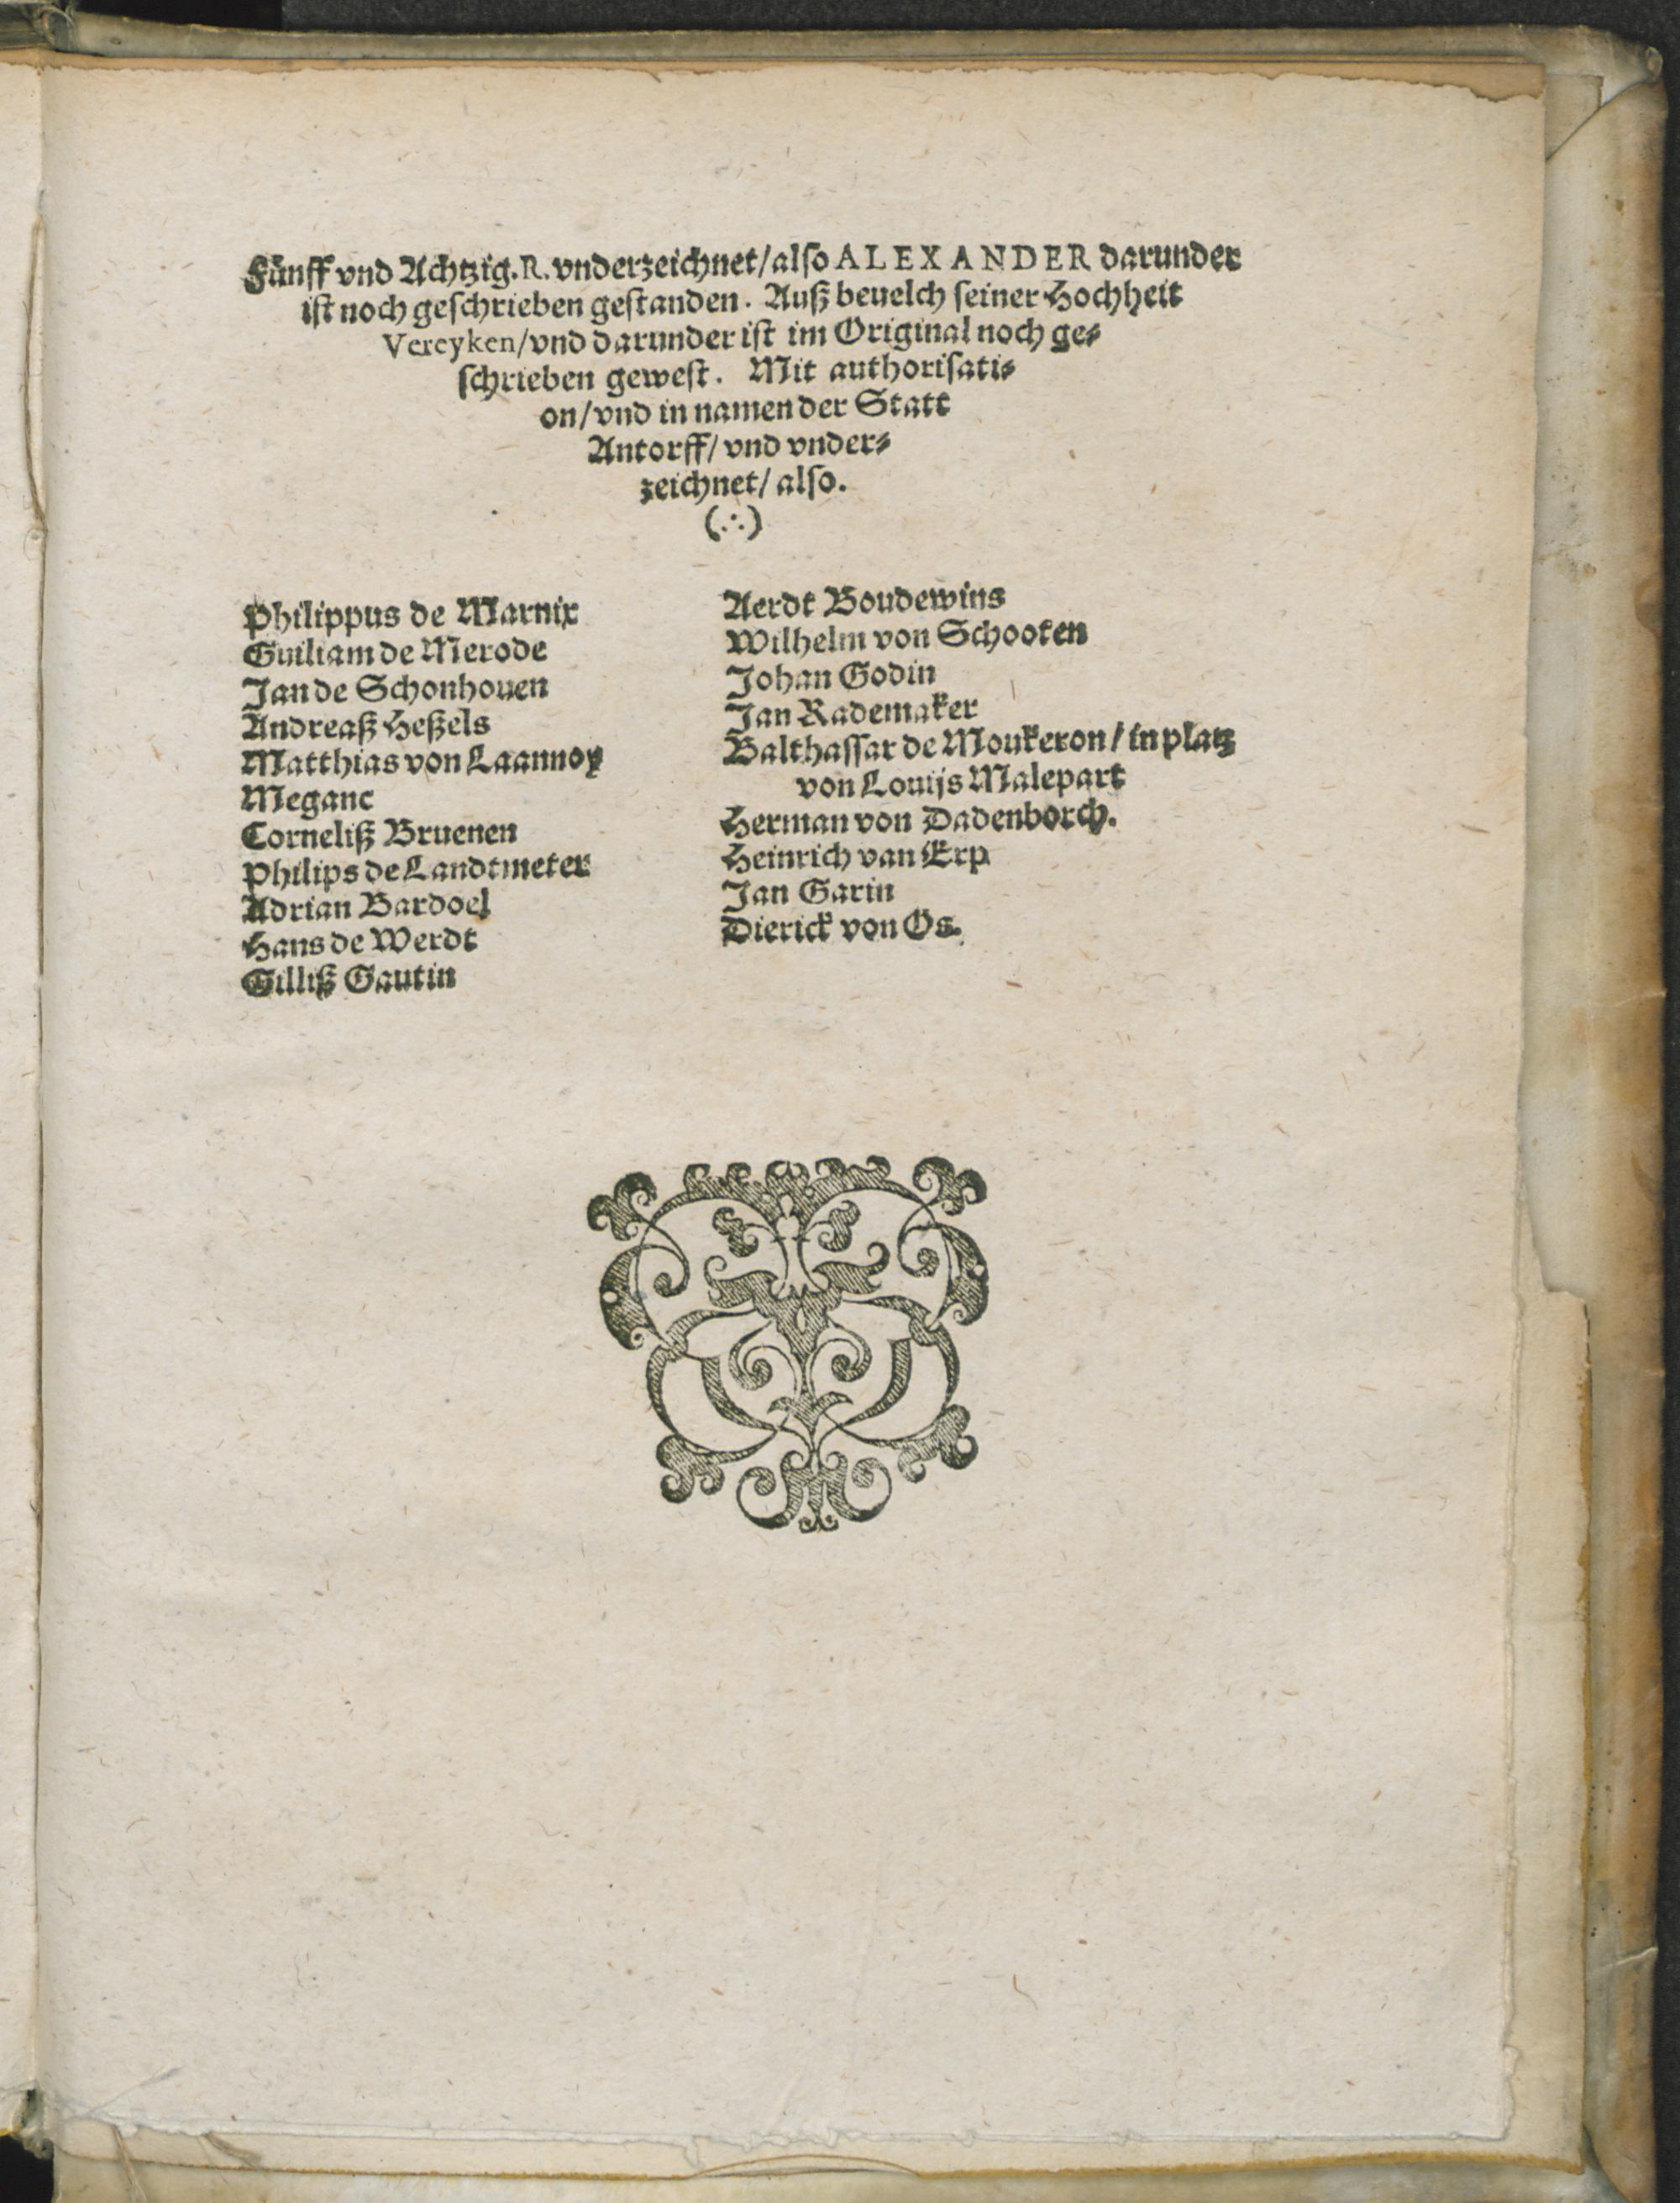 Fünff vnd Achtzig. R. vnderzeichnet/ also ALEXANDER darunder
ist noch geschrieben gestanden. Auß beuelch seiner Hochheit
Vereyken/ vnd darunder ist im Original noch ge⸗
schrieben gewest. Mit authorisati⸗
on/ vnd in namen der Statt
Antorff/ vnd vnder⸗
zeichnet/ also.
(.·.)
Philippus de Marnix
Guiliam de Merode
Jan de Schonhouen
Andreaß Heßels
Matthias von Laannoy
Meganc
Corneliß Bruenen
Philips de Landtmeter
Adrian Bardoel
Hans de Werdt
Gilliß Gautin
Aerdt Boudewins
Wilhelm von Schooten
Johan Godin
Jan Rademaker
Balthassar de Moukeron/ in platz
von Louijs Malepart
Herman von Dadenborch.
Heinrich van Erp
Jan Garin
Dierick von Os.